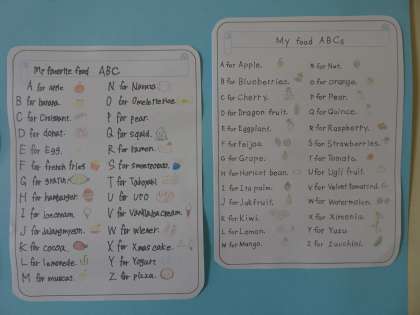 My favorite food ABC
A for apple.
B for banana.
C for Croissant.
D for donut.
E for Egg.
F for french fries
G for gratin
H for hamburger.
I for Icecream
J for Jajangmyeon.
K for cocoa.
L for lemonade.
M for muscat.
N for
O for Omelette rice
P for pear.
Q for squid.
R for ramen.
S for
T for Takoyaki
U for UFO
V for Vanilla ice cream.
W for wiener.
X for Xmas cake.
Y for Yogurt.
Z for pizza.
My food ABCs
A for Apple.
B for Blueberries.
C for Cherry.
D for Dragon fruit.
E for Eggplant.
F for Feijoa.
G for Grape.
H for Haricot bean.
I for Ita palm.
J for Jakfruit.
K for Kiwi.
L for Lemon.
M for Mango.
N for Nut.
O for Orange.
P for Pear.
Q for Quince.
R for Raspberry.
S for Strawberries.
T for Tomato.
U for Ugli fruit.
V for Velvet tamarind.
W for Watermelon.
X for Ximenia.
Y for Yuzu
Z for Zucchini.